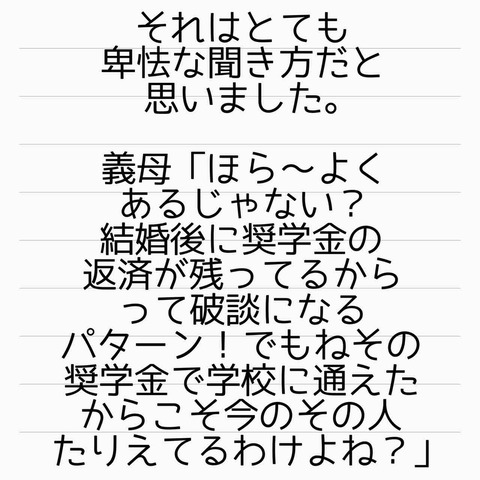 それはとても
卑怯な聞き方だと
思いました。
義母「ほら～よく
あるじゃない？
結婚後に奨学金の
返済が残ってるから
って破談になる
パターン！でもねその
奨学金で学校に通えた
からこそ今のその人
たりえてるわけよね？」